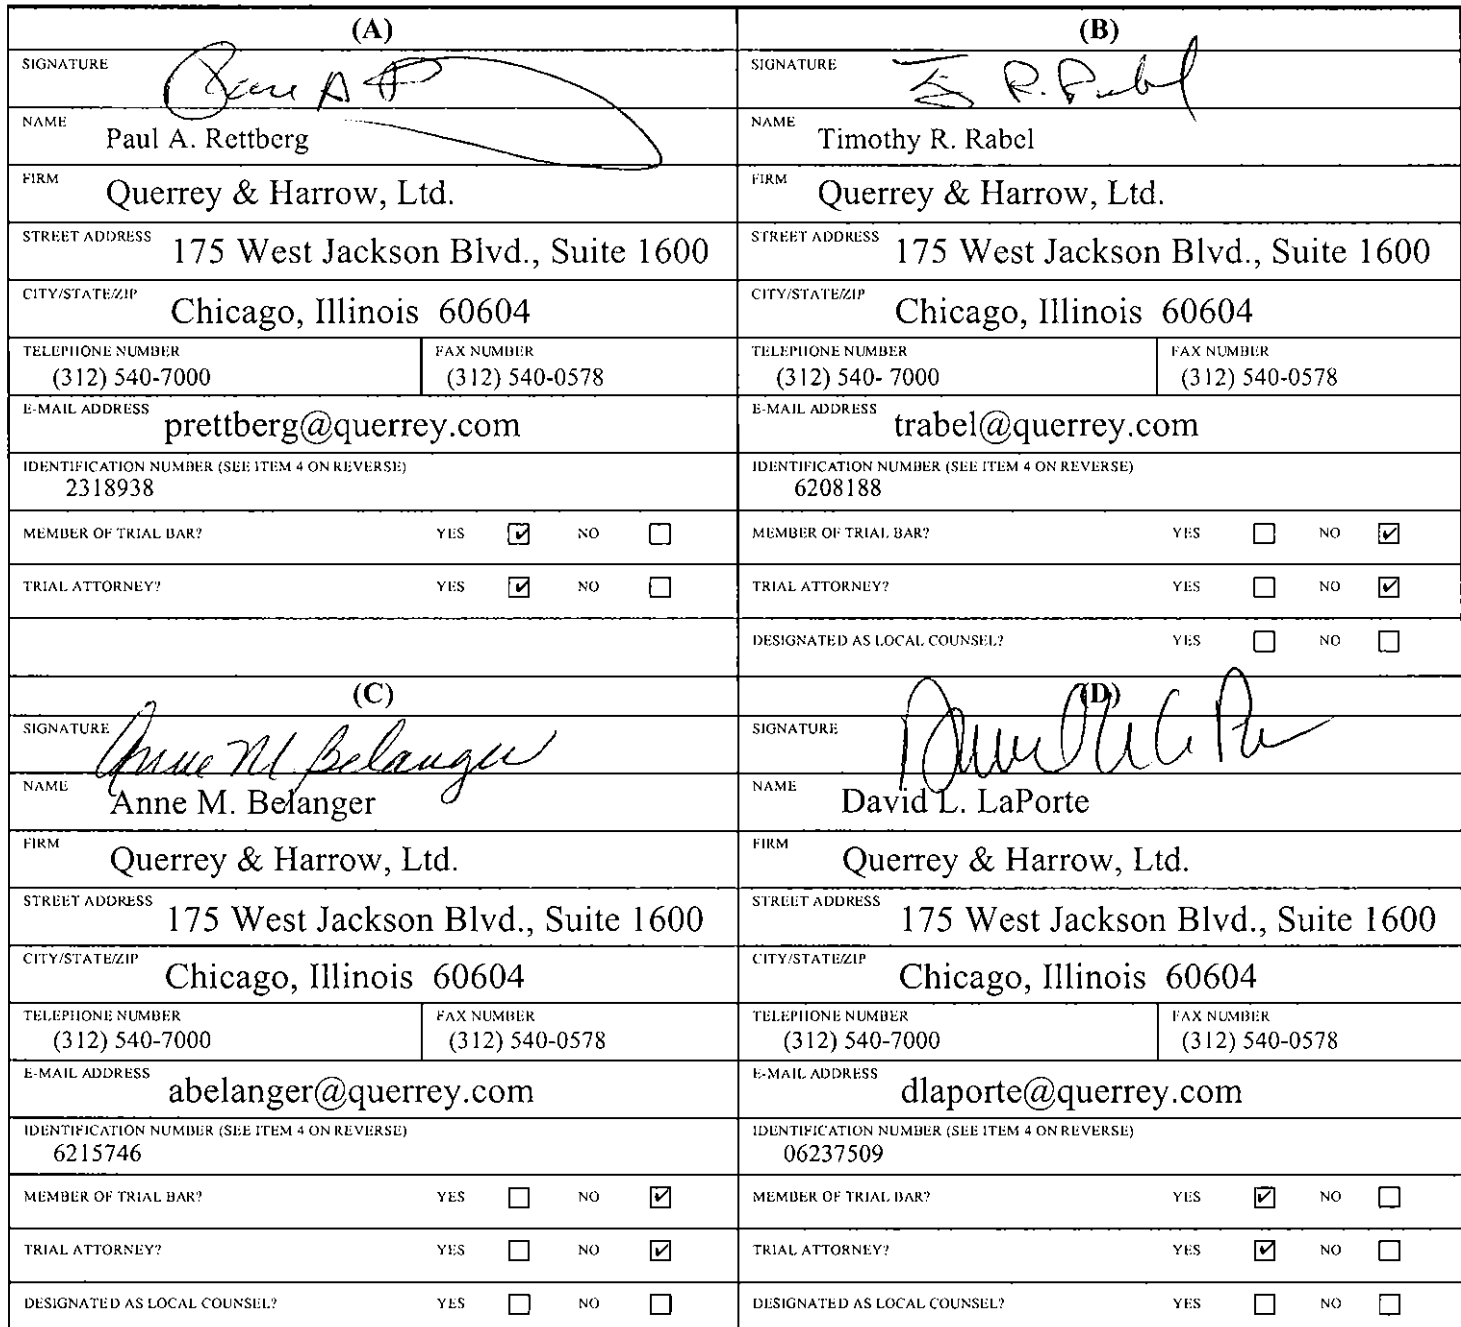 (A)
SIGNATURE
NAME Paul A. Rettberg
FIRM Querrey & Harrow, Ltd.
STREET ADDRESS 175 West Jackson Blvd., Suite 1600
CITY/STATE/ZIP Chicago, Illinois 60604
TELEPHONE NUMBER (312) 540-7000
FAX NUMBER (312) 540-0578
E-MAIL ADDRESS prettberg@querrey.com
IDENTIFICATION NUMBER (SEE ITEM 4 ON REVERSE)
2318938
MEMBER OF TRIAL BAR? YES ☑ NO ☐
TRIAL ATTORNEY? YES ☑ NO ☐
(B)
SIGNATURE R. Rabel
NAME Timothy R. Rabel
FIRM Querrey & Harrow, Ltd.
STREET ADDRESS 175 West Jackson Blvd., Suite 1600
CITY/STATE/ZIP Chicago, Illinois 60604
TELEPHONE NUMBER (312) 540- 7000
FAX NUMBER (312) 540-0578
E-MAIL ADDRESS trabel@querrey.com
IDENTIFICATION NUMBER (SEE ITEM 4 ON REVERSE)
6208188
MEMBER OF TRIAL BAR? YES ☐ NO ☑
TRIAL ATTORNEY? YES ☐ NO ☑
DESIGNATED AS LOCAL COUNSEL? YES ☐ NO ☐
(C)
SIGNATURE Anne M Belanger
NAME Anne M. Belanger
FIRM Querrey & Harrow, Ltd.
STREET ADDRESS 175 West Jackson Blvd., Suite 1600
CITY/STATE/ZIP Chicago, Illinois 60604
TELEPHONE NUMBER (312) 540-7000
FAX NUMBER (312) 540-0578
E-MAIL ADDRESS abelanger@querrey.com
IDENTIFICATION NUMBER (SEE ITEM 4 ON REVERSE)
6215746
MEMBER OF TRIAL BAR? YES ☐ NO ☑
TRIAL ATTORNEY? YES ☐ NO ☑
DESIGNATED AS LOCAL COUNSEL? YES ☐ NO ☐
(D)
SIGNATURE
NAME David L. LaPorte
FIRM Querrey & Harrow, Ltd.
STREET ADDRESS 175 West Jackson Blvd., Suite 1600
CITY/STATE/ZIP Chicago, Illinois 60604
TELEPHONE NUMBER (312) 540-7000
FAX NUMBER (312) 540-0578
E-MAIL ADDRESS dlaporte@querrey.com
IDENTIFICATION NUMBER (SEE ITEM 4 ON REVERSE)
06237509
MEMBER OF TRIAL BAR? YES ☑ NO ☐
TRIAL ATTORNEY? YES ☑ NO ☐
DESIGNATED AS LOCAL COUNSEL? YES ☐ NO ☐